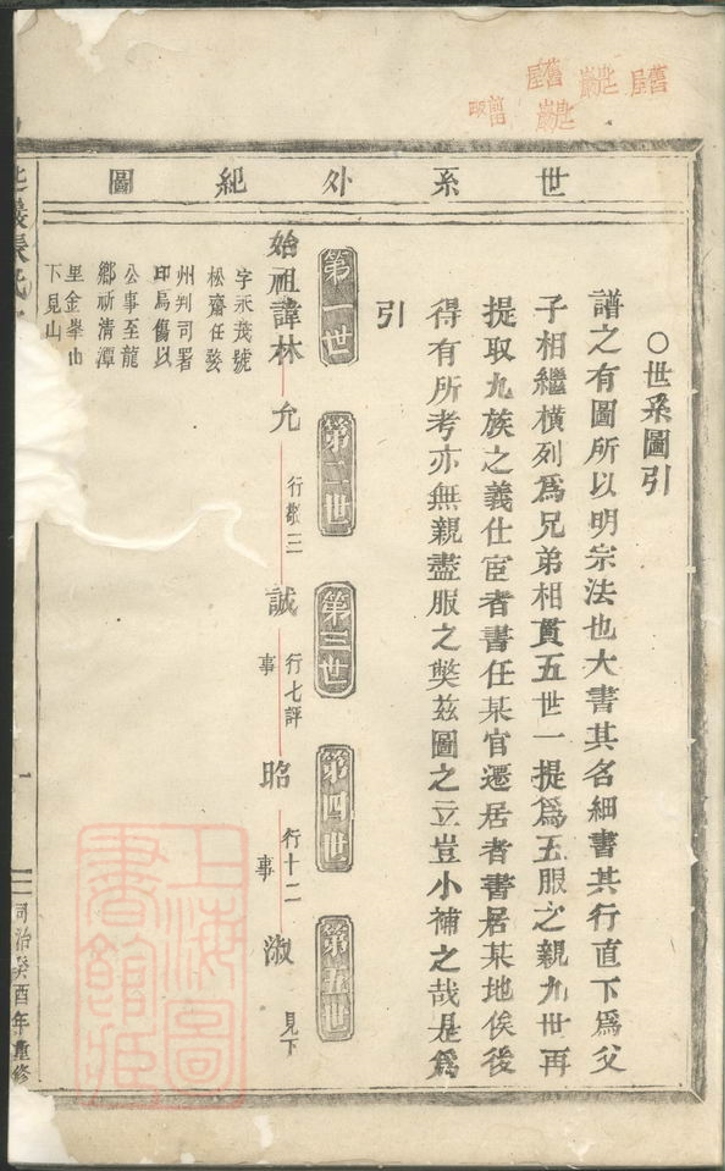 世系外紀圖
〇世系圖引
譜之有圖所以明宗法也大書其名細書其行直下爲父
子相繼橫列爲兄弟相貫五世一提爲五服之親九世再
提取九族之義仕宦者書任某官遷居者書居某地俟後
得有所考亦無親盡服之獘茲圖之立豈小補之哉是爲
引
第一世
第二世
第三世
第四世
第五世
始祖諱林
允
行敬三
誠
行七評
事
昭
行十二
事
淑
見下
字永茂號
松齋任婺
州判司署
印烏傷以
公事至龍
鄉祈清潭
里金
下見山
同治癸酉年重修
上海圖
書館藏